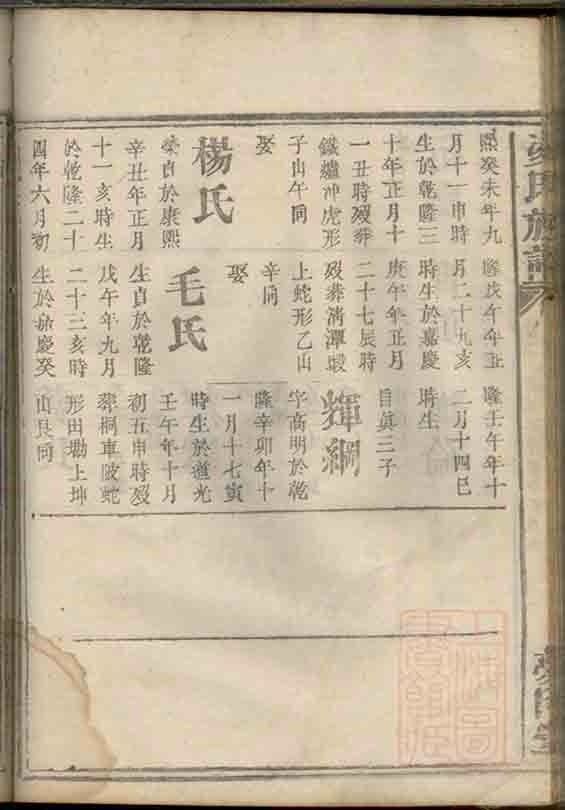 熙癸未年九
月十一申時
生於乾隆三
十年正月十
一丑時歿葬
鐵爐冲虎形
子山午同
娶
楊氏
癸貞於康熙
辛丑年正月
十一亥時生
於乾隆二十
四年六月初
隆戊午年正
月二十九亥
時生於嘉慶
庚午年正月
二十七辰時
歿葬淸潭塅
上蛇形乙山
辛同
娶
毛氏
生貞於乾隆
戊午年九月
二十三亥時
生於嘉慶癸
隆壬午年十
二月十四巳
時生
自眞三子
輝綱
字高明於乾
隆辛卯年十
一月十七寅
時生於道光
壬午年十月
初五申時歿
葬桐車陂蛇
形田墈上坤
山艮同
氏族譜